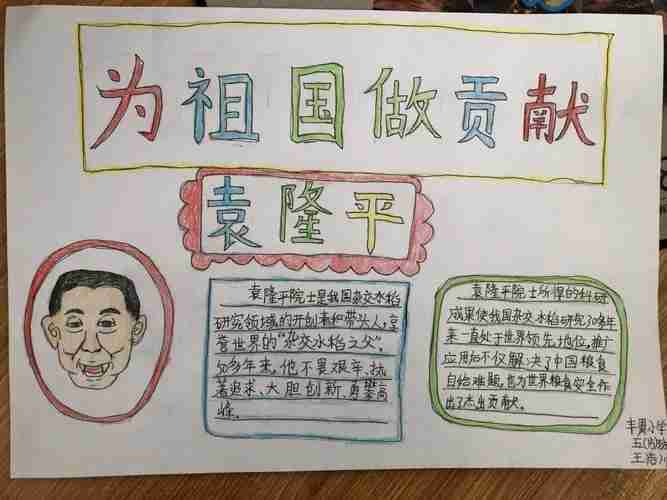 为祖国做贡献
袁隆平
袁隆平院士是我国杂交水稻
研究领域的开创者和带头人,享
誉世界的“杂交水稻之父”。
50多年来,他不畏艰辛、执
着追求、大胆创新、勇攀高
峰。
袁隆平院士所得的科研
成果使我国杂交水稻研究30多年
来一直处于世界领先地位,推广
应用后不仅解决了中国粮食
自给难题,也为世界粮食安全作
出了杰出贡献。
小学
五
王浩